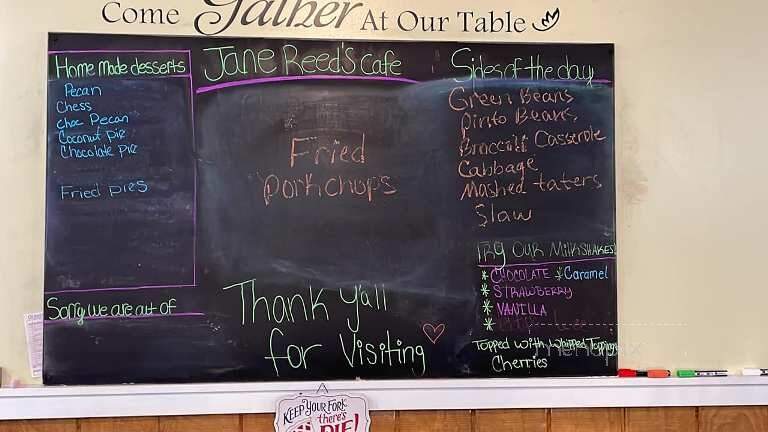 Come Gather At Our Table
Home made desserts
Pecan
Chess
choc Pecan
Coconut pie
Chocolate pie
Fried pies
Sorry we are out of
Jane Reed's cafe
Fried
porkchops
Thank Y'all
for Visiting
Sides of the day
Green Beans
Pinto Beans,
Broccoli Casserole
Cabbage
Mashed taters
Slaw
Try Our Milkshakes!
* CHOCOLATE * Caramel
* STRAWBERRY
* VANILLA
*
Topped with Whipped Topping
Cherries
KEEP YOUR FORK
there's
PIE!